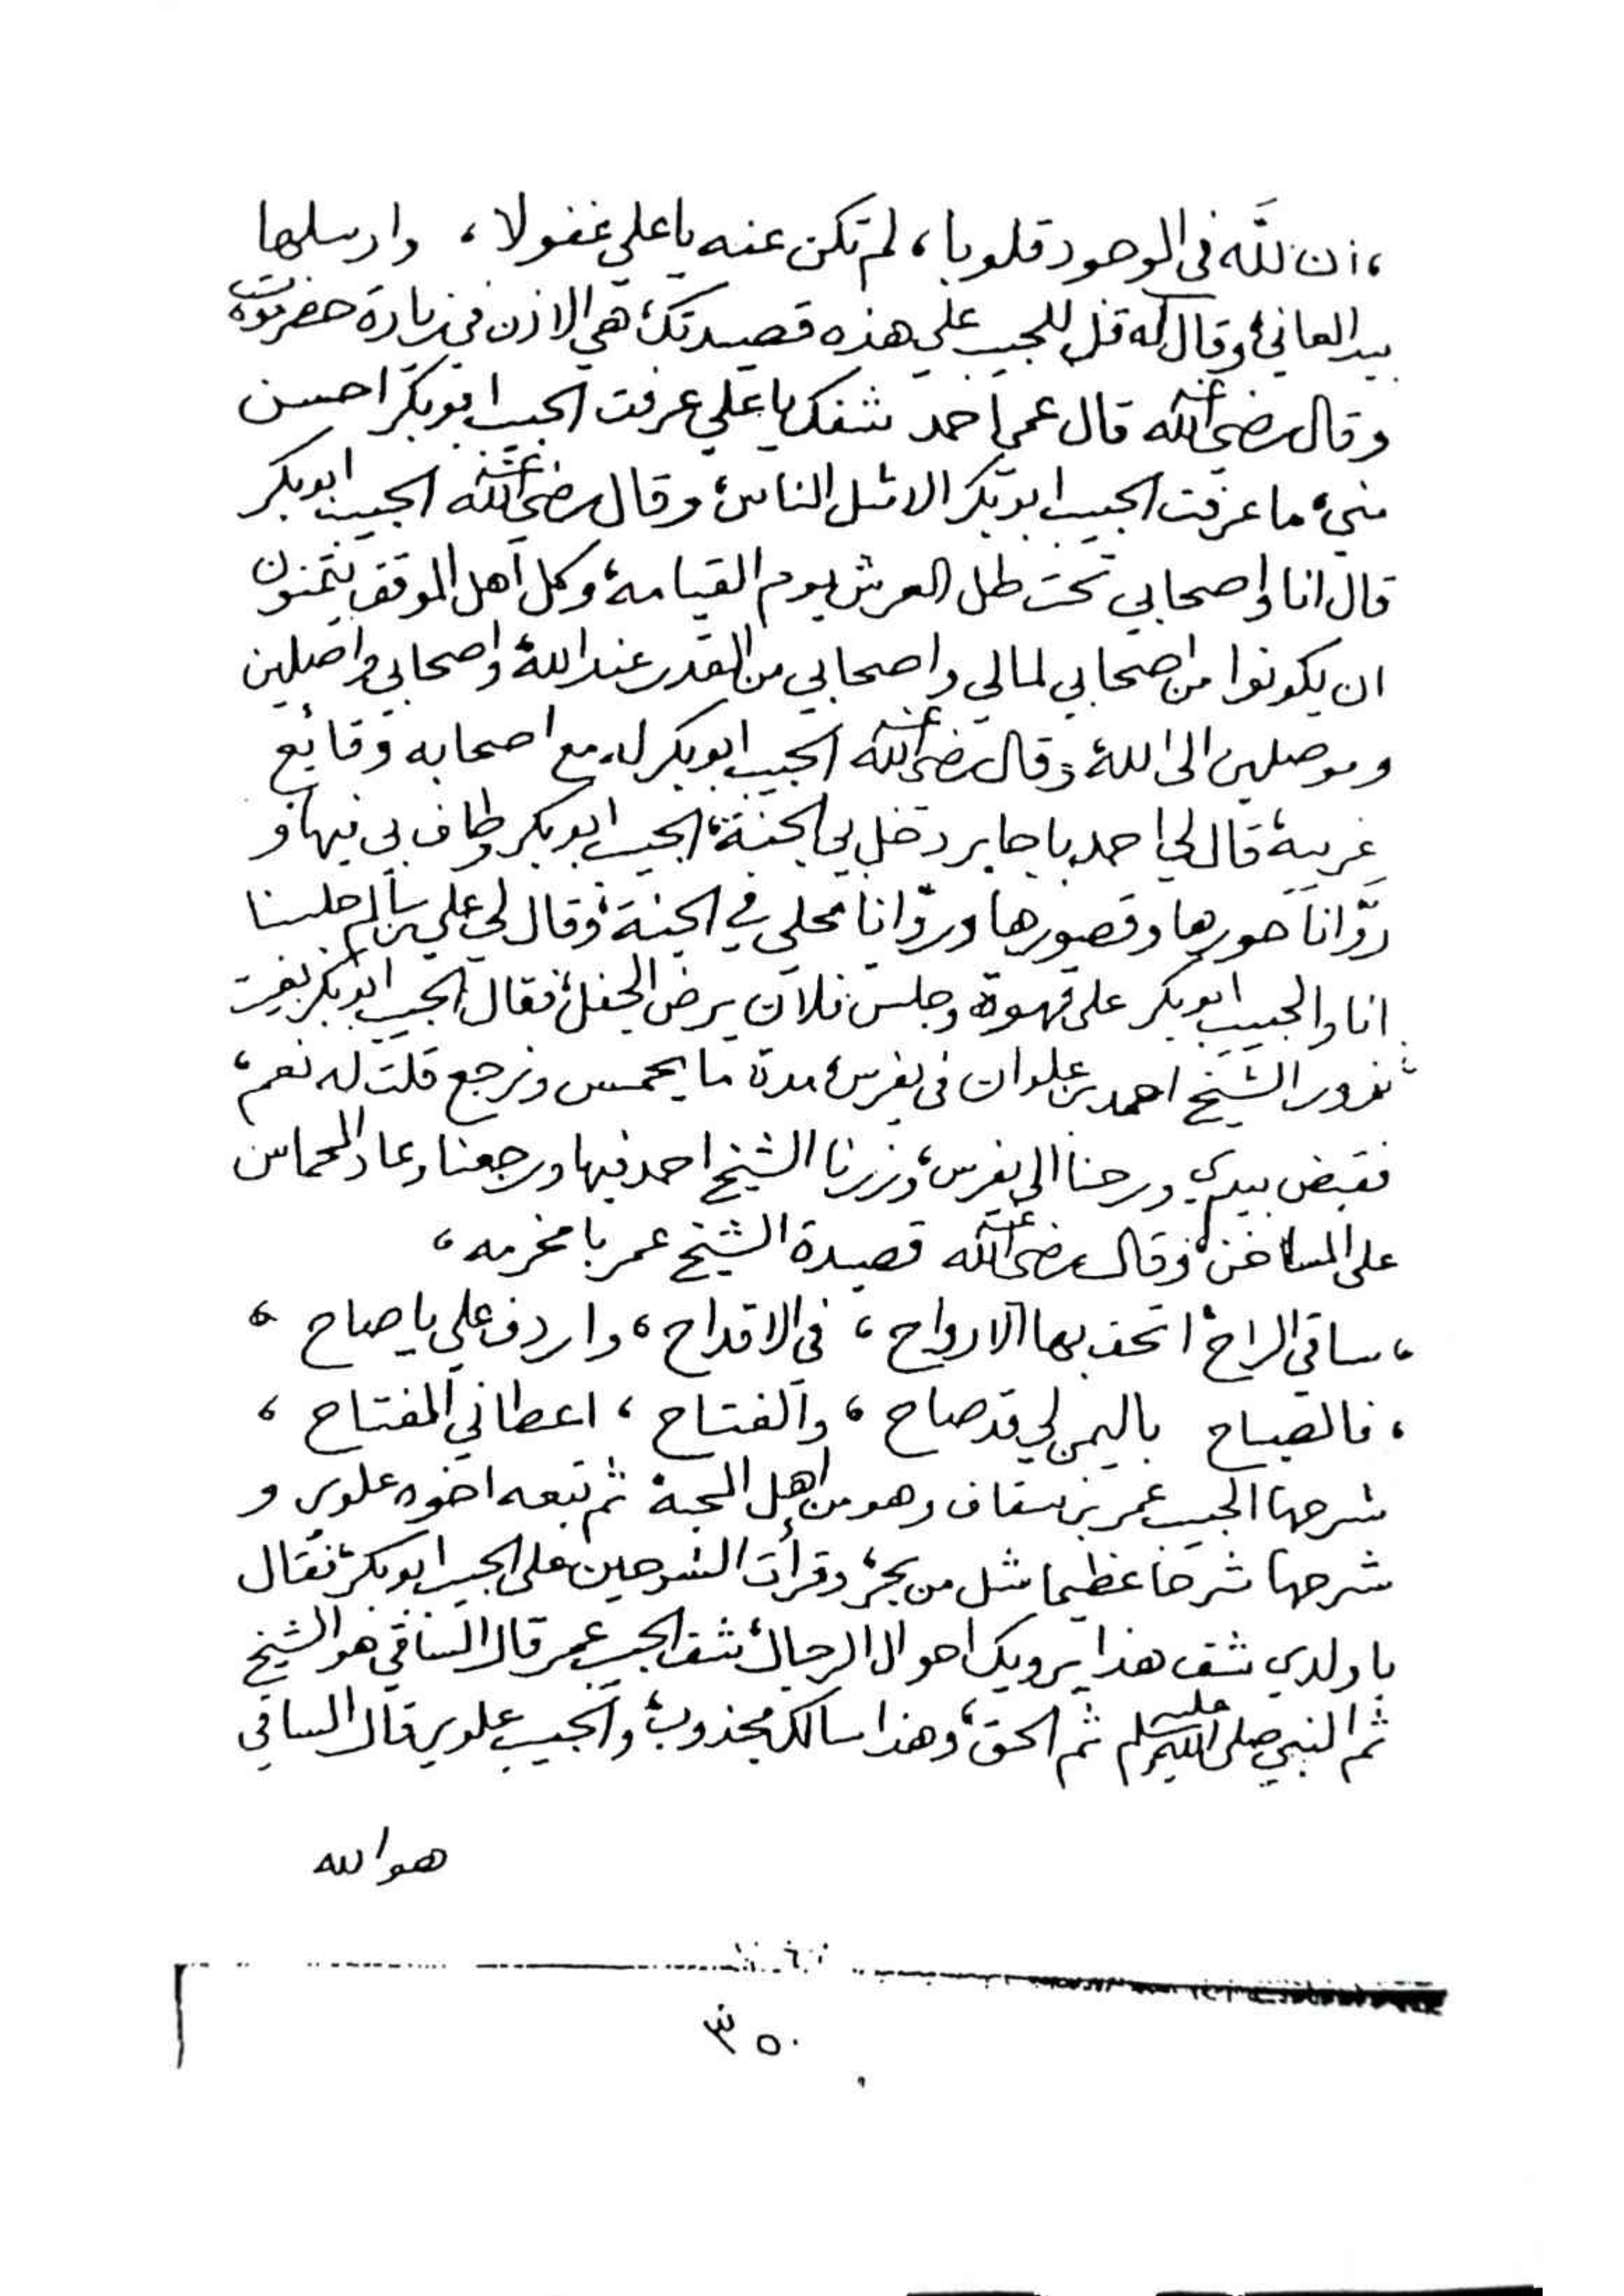 ، ان لله في الوجود قلوبا ، لم تكن عنه يا علي غفولا ، وارسلها
بيد العاني، وقال له قل للحبيب علي هذه قصيدتك، هي الاذن في زيارة حضرموت
وقال رضي الله عنه قال عمي احمد شفك يا علي عرفت الحبيب ابو بكر احسن
مني، ما عرفت الحبيب ابو بكر الا مثل الناس، وقال رضي الله عنه الحبيب ابو بكر
قال انا واصحابي تحت ظل العرش يوم القيامة، وكل اهل الموقف يتمنون
ان يكونوا من اصحابي لما لي واصحابي من القدر عند الله، واصحابي واصلين
وموصلين الى الله، وقال رضي الله عنه الحبيب ابو بكر له مع اصحابه وقايع
غريبة، قال لي احمد با جابر دخل بي الجنة، الحبيب ابو بكر وطاف بي فيها، و
روّانا حورها وقصورها وروّانا محلي في الجنة، وقال لي علي بن سالم جلسنا
انا والحبيب ابو بكر على قهوة وجلس فلان يرض الجفل، فقال الحبيب ابو بكر بغيت
نزور الشيخ احمد بن علوان في يفرس، مدة ما يحمس ونرجع قلت له نعم،
فقبض بيدي ورحنا الى يفرس، وزرنا الشيخ احمد فيها ورجعنا وعاد المحماس
على المساخن، وقال رضي الله عنه قصيدة الشيخ عمر با مخرمه ،
، ساقي الراح، اتحف بها الارواح ، في الاقداح ، واردف علي يا صاح ،
، فالصياح باليمن لي قد صاح ، والفتاح ، اعطاني المفتاح ،
شرحها الحبيب عمر بن سقاف وهو من اهل المحبة ثم تبعه اخوه علوي و
شرحها شرحا عظيما مثل من بحر، وقرأت الشرحين على الحبيب ابو بكر، فقال
يا ولدي شف هذا يرويك احوال الرجال، شف الحبيب عمر قال الساقي هو الشيخ
ثم النبي صلى الله عليه وسلم ثم الحق، وهذا سالك مجذوب، والحبيب علوي قال الساقي
هو الله